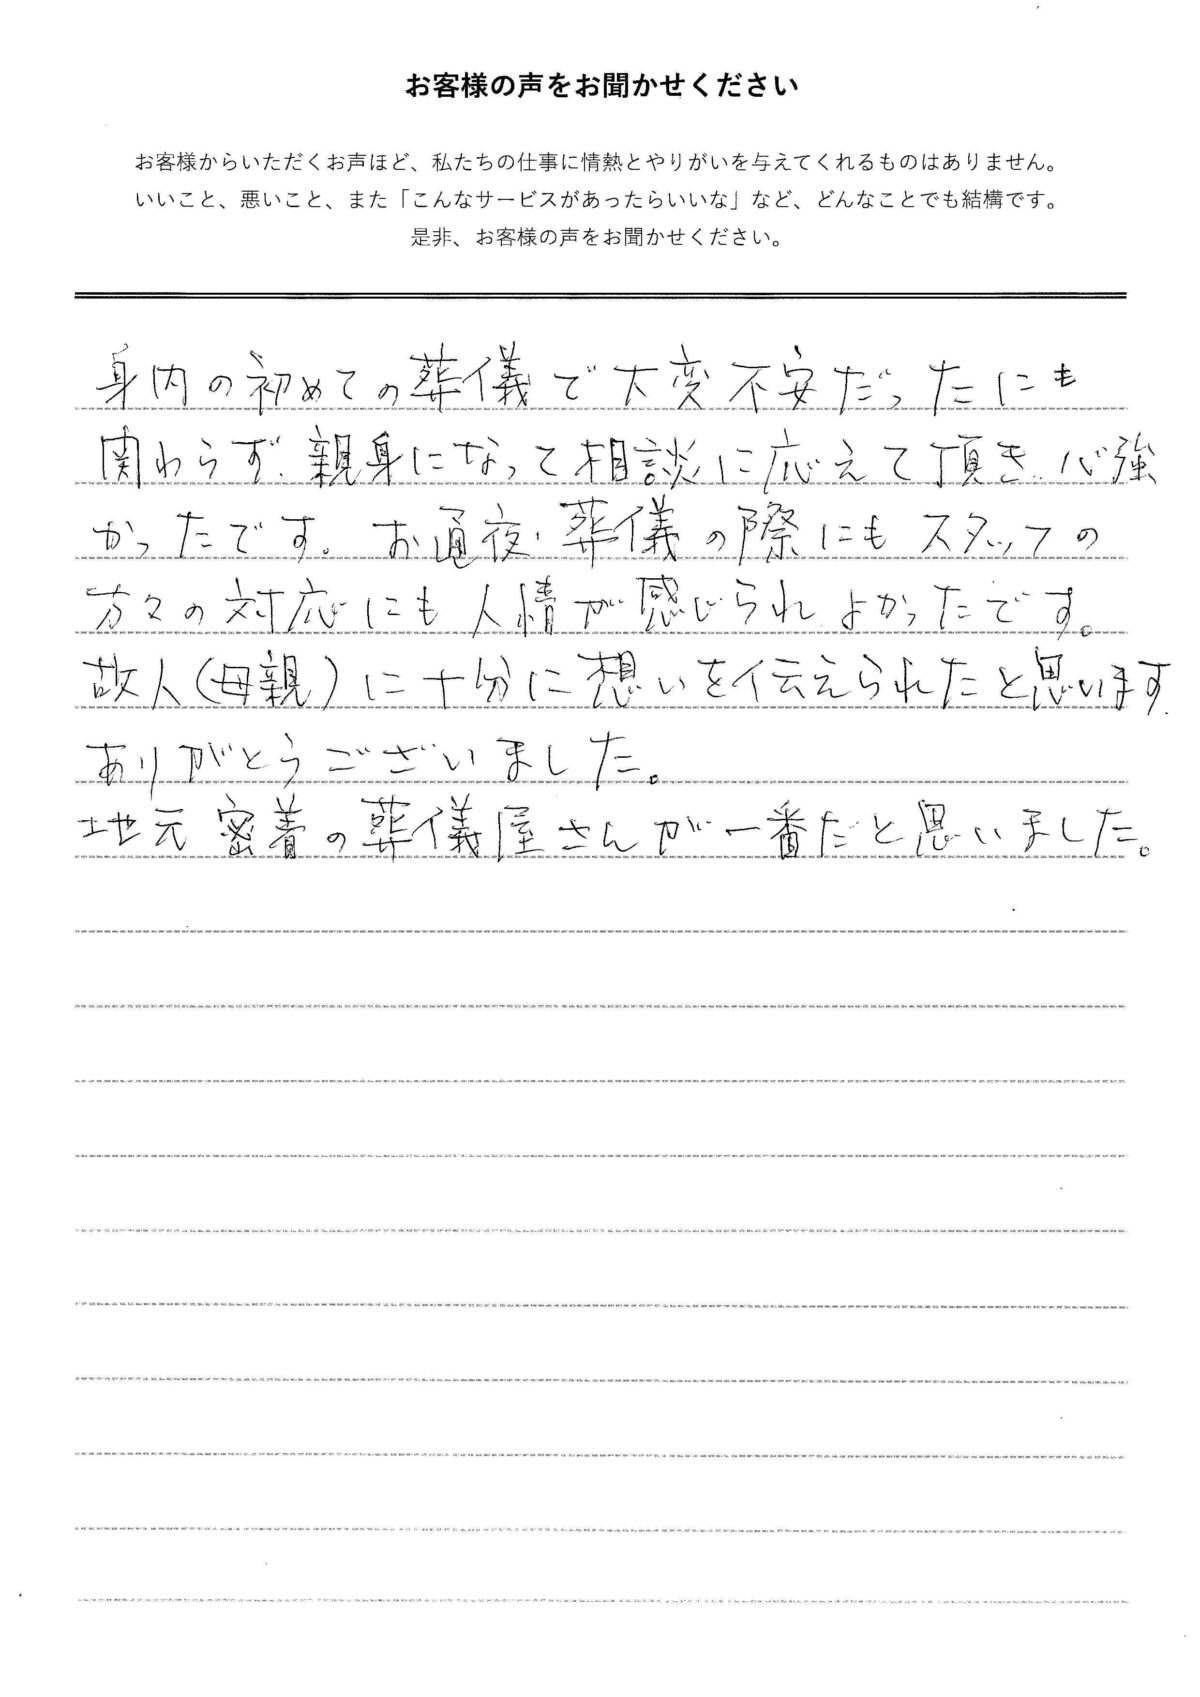 お客様の声をお聞かせください
お客様からいただくお声ほど、私たちの仕事に情熱とやりがいを与えてくれるものはありません。
いいこと、悪いこと、また「こんなサービスがあったらいいな」など、どんなことでも結構です。
是非、お客様の声をお聞かせください。
身内の初めての葬儀で大変不安だったにも
関わらず、親身になって相談に応えて頂き、心強
かったです。お通夜・葬儀の際にもスタッフの
方々の対応にも人情が感じられよかったです。
故人(母親)に十分に想いを伝えられたと思います。
ありがとうございました。
地元密着の葬儀屋さんが一番だと思いました。